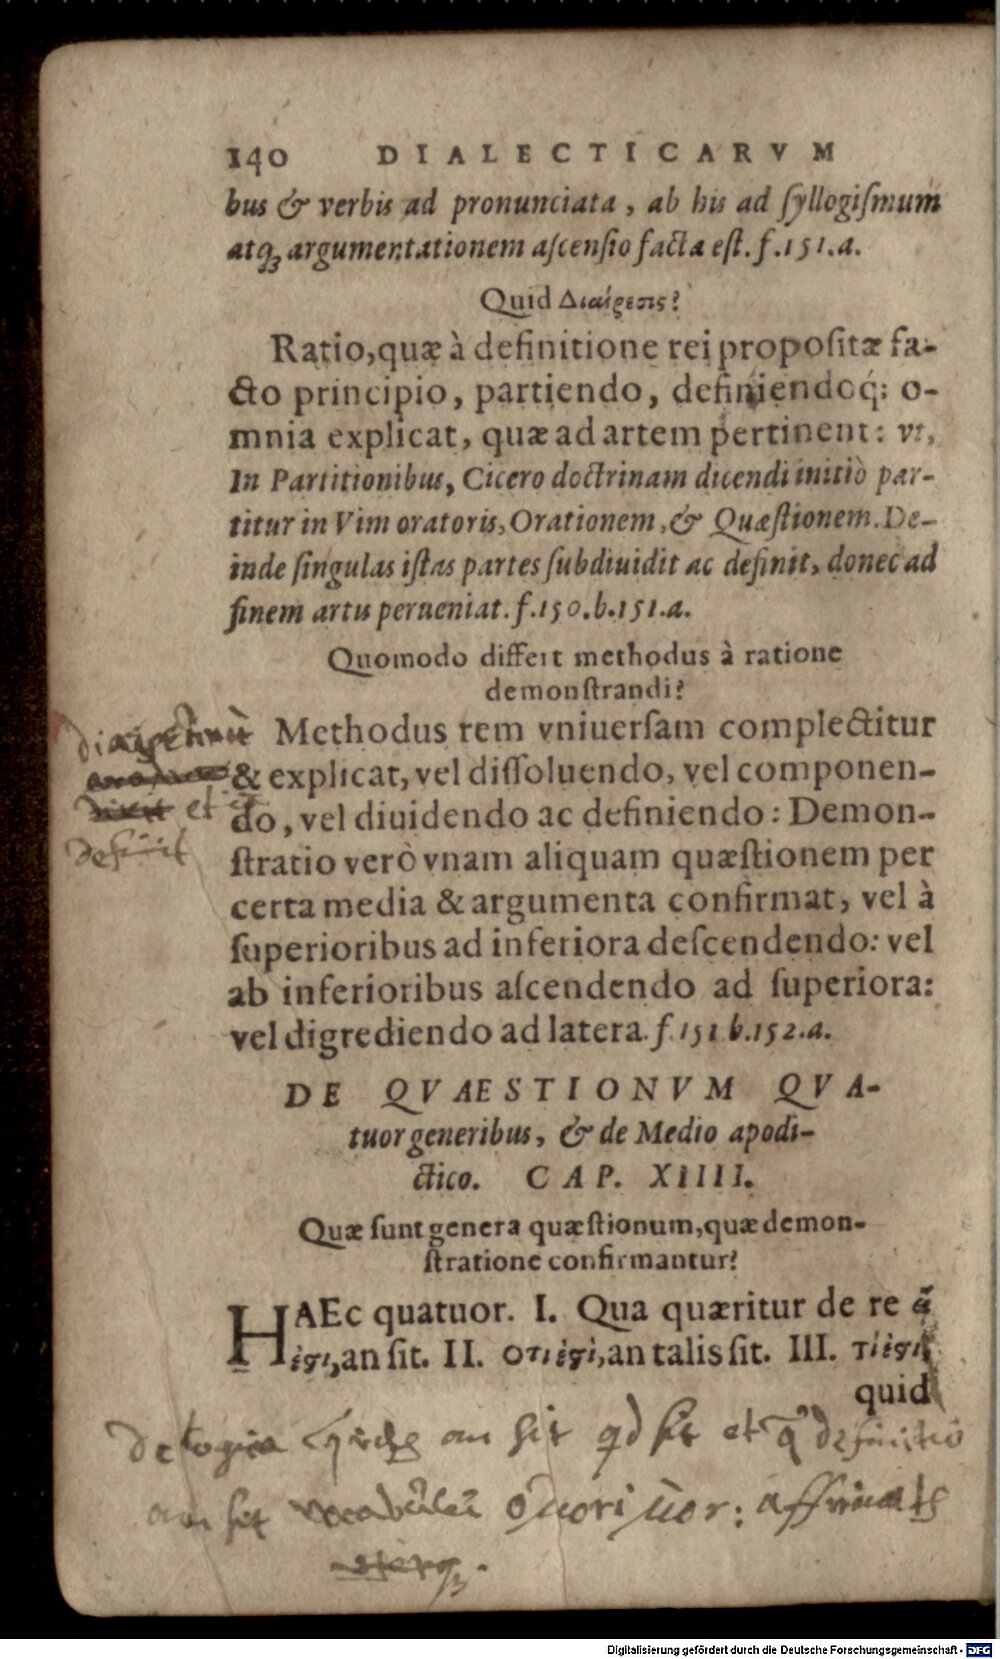 140 DIALECTICARVM
bus & verbis ad pronunciata, ab his ad ſyllogiſmum
atq́ꝫ argumentationem aſcenſio facta eſt. f.151.a.
Quid Διαίρεσις?
Ratio, quæ à definitione rei propoſitæ fa-
cto principio, partiendo, definiendoq́; o-
mnia explicat, quæ ad artem pertinent: vt,
In Partitionibus, Cicero doctrinam dicendi initiò par-
titur in Vim oratoris, Orationem, & Quæſtionem. De-
inde ſingulas iſtas partes ſubdiuidit ac definit, donec ad
finem artis perueniat. f.150.b.151.a.
Quomodo differt methodus à ratione
demonſtrandi?
Methodus rem vniuerſam complectitur
& explicat, vel diſſoluendo, vel componen-
et
do, vel diuidendo ac definiendo: Demon-
definit
ſtratio verò vnam aliquam quæſtionem per
certa media & argumenta confirmat, vel à
ſuperioribus ad inferiora deſcendendo: vel
ab inferioribus aſcendendo ad ſuperiora:
vel digrediendo ad latera. f.151 b.152.a.
DE QVAESTIONVM QVA-
tuor generibus, & de Medio apodi-
ctico. CAP. XIIII.
Quæ ſunt genera quæſtionum, quæ demon-
ſtratione confirmantur?
HAEc quatuor. I. Qua quæritur de re εἰ
ἐστι, an ſit. II. ὅτι ἐστὶ, an talis ſit. III. τί ἐστι,
quid
De logica an ſit qd ſit et definitio
an ſit
Digitalisierung gefördert durch die Deutsche Forschungsgemeinschaft - DFG